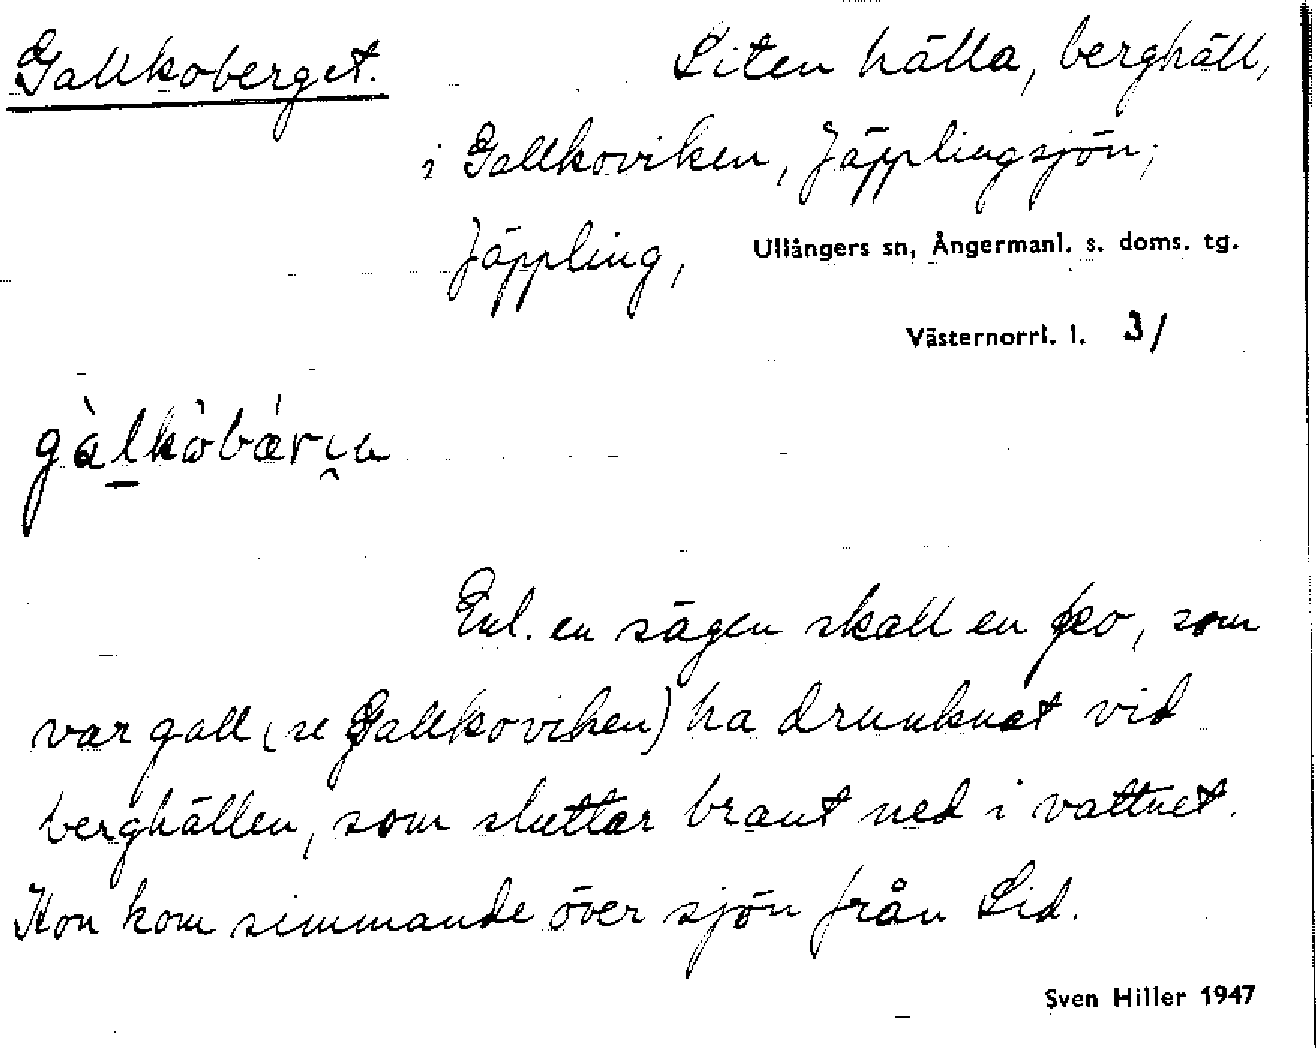 Gallkoberget. Liten hälla, berghäll,
i Gallkoviken, Jäpplingsjön,
Jäppling, Ullångers sn, Ångermanl. s. doms. tg.
Västernorrl. l. 31
Enl. en sägen skall en ko, som
var gall (se Gallkoviken) ha drunknat vid
berghällen, som sluttar brant ned i vattnet.
Hon kom simmande över sjön från Lid.
Sven Hiller 1947